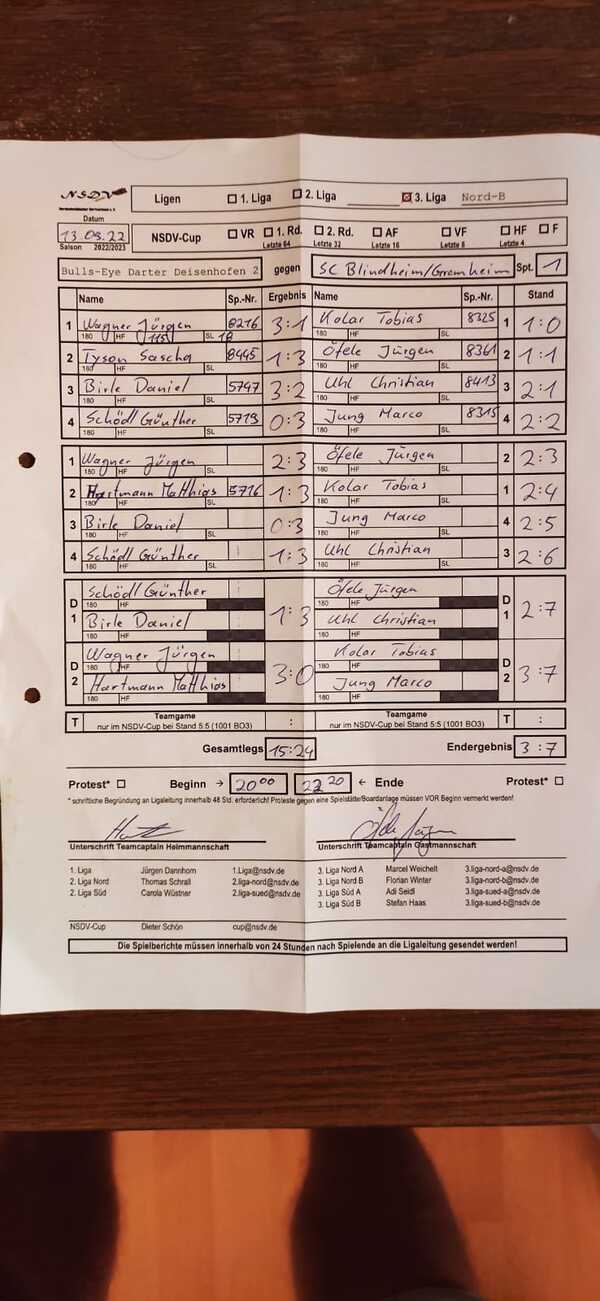 NSDV
Ligen ☐ 1. Liga ☐ 2. Liga ☒ 3. Liga Nord-B
Datum
13.09.22
Saison 2022/2023
NSDV-Cup ☐ VR ☐ 1. Rd. ☐ 2. Rd. ☐ AF ☐ VF ☐ HF ☐ F
Letzte 64 Letzte 32 Letzte 16 Letzte 8 Letzte 4
Bulls-Eye Darter Deisenhofen 2 gegen SC Blindheim/Gremheim Spt. 1
Name Sp.-Nr. Ergebnis Name Sp.-Nr. Stand
1 Wagner Jürgen 8216 3:1 Kolar Tobias 8325 1 1:0
180 HF 115 SL 18 180 HF SL
2 Tyson Sascha 8445 1:3 Öfele Jürgen 8361 2 1:1
180 HF SL 180 HF SL
3 Birle Daniel 5747 3:2 Uhl Christian 8413 3 2:1
180 HF SL 180 HF SL
4 Schödl Günther 5719 0:3 Jung Marco 8315 4 2:2
180 HF SL 180 HF SL
1 Wagner Jürgen 2:3 Öfele Jürgen 2 2:3
180 HF SL 180 HF SL
2 Hartmann Matthias 5716 1:3 Kolar Tobias 1 2:4
180 HF SL 180 HF SL
3 Birle Daniel 0:3 Jung Marco 4 2:5
180 HF SL 180 HF SL
4 Schödl Günther 1:3 Uhl Christian 3 2:6
180 HF SL 180 HF SL
D 1 Schödl Günther 1:3 Öfele Jürgen D 1 2:7
180 HF 180 HF
Birle Daniel Uhl Christian
180 HF 180 HF
D 2 Wagner Jürgen 3:0 Kolar Tobias D 2 3:7
180 HF 180 HF
Hartmann Matthias Jung Marco
180 HF 180 HF
T Teamgame : Teamgame T :
nur im NSDV-Cup bei Stand 5:5 (1001 BO3) nur im NSDV-Cup bei Stand 5:5 (1001 BO3)
Gesamtlegs 15:24 Endergebnis 3:7
Protest* ☐ Beginn → 20 00 22 20 ← Ende Protest* ☐
* schriftliche Begründung an Ligaleitung innerhalb 48 Std. erforderlich! Proteste gegen eine Spielstätte/Boardanlage müssen VOR Beginn vermerkt werden!
Unterschrift Teamcaptain Heimmannschaft Unterschrift Teamcaptain Gastmannschaft
1. Liga Jürgen Dannhorn 1.Liga@nsdv.de 3. Liga Nord A Marcel Weichelt 3.liga-nord-a@nsdv.de
2. Liga Nord Thomas Schrall 2.liga-nord@nsdv.de 3. Liga Nord B Florian Winter 3.liga-nord-b@nsdv.de
2. Liga Süd Carola Wüstner 2.liga-sued@nsdv.de 3. Liga Süd A Adi Seidl 3.liga-sued-a@nsdv.de
3. Liga Süd B Stefan Haas 3.liga-sued-b@nsdv.de
NSDV-Cup Dieter Schön cup@nsdv.de
Die Spielberichte müssen innerhalb von 24 Stunden nach Spielende an die Ligaleitung gesendet werden!